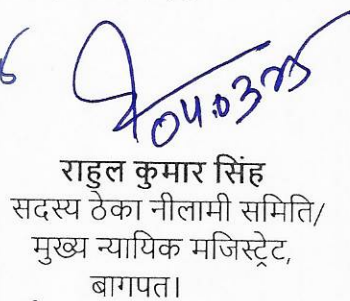 04.03.25
राहुल कुमार सिंह
सदस्य ठेका नीलामी समिति/
मुख्य न्यायिक मजिस्ट्रेट,
बागपत।